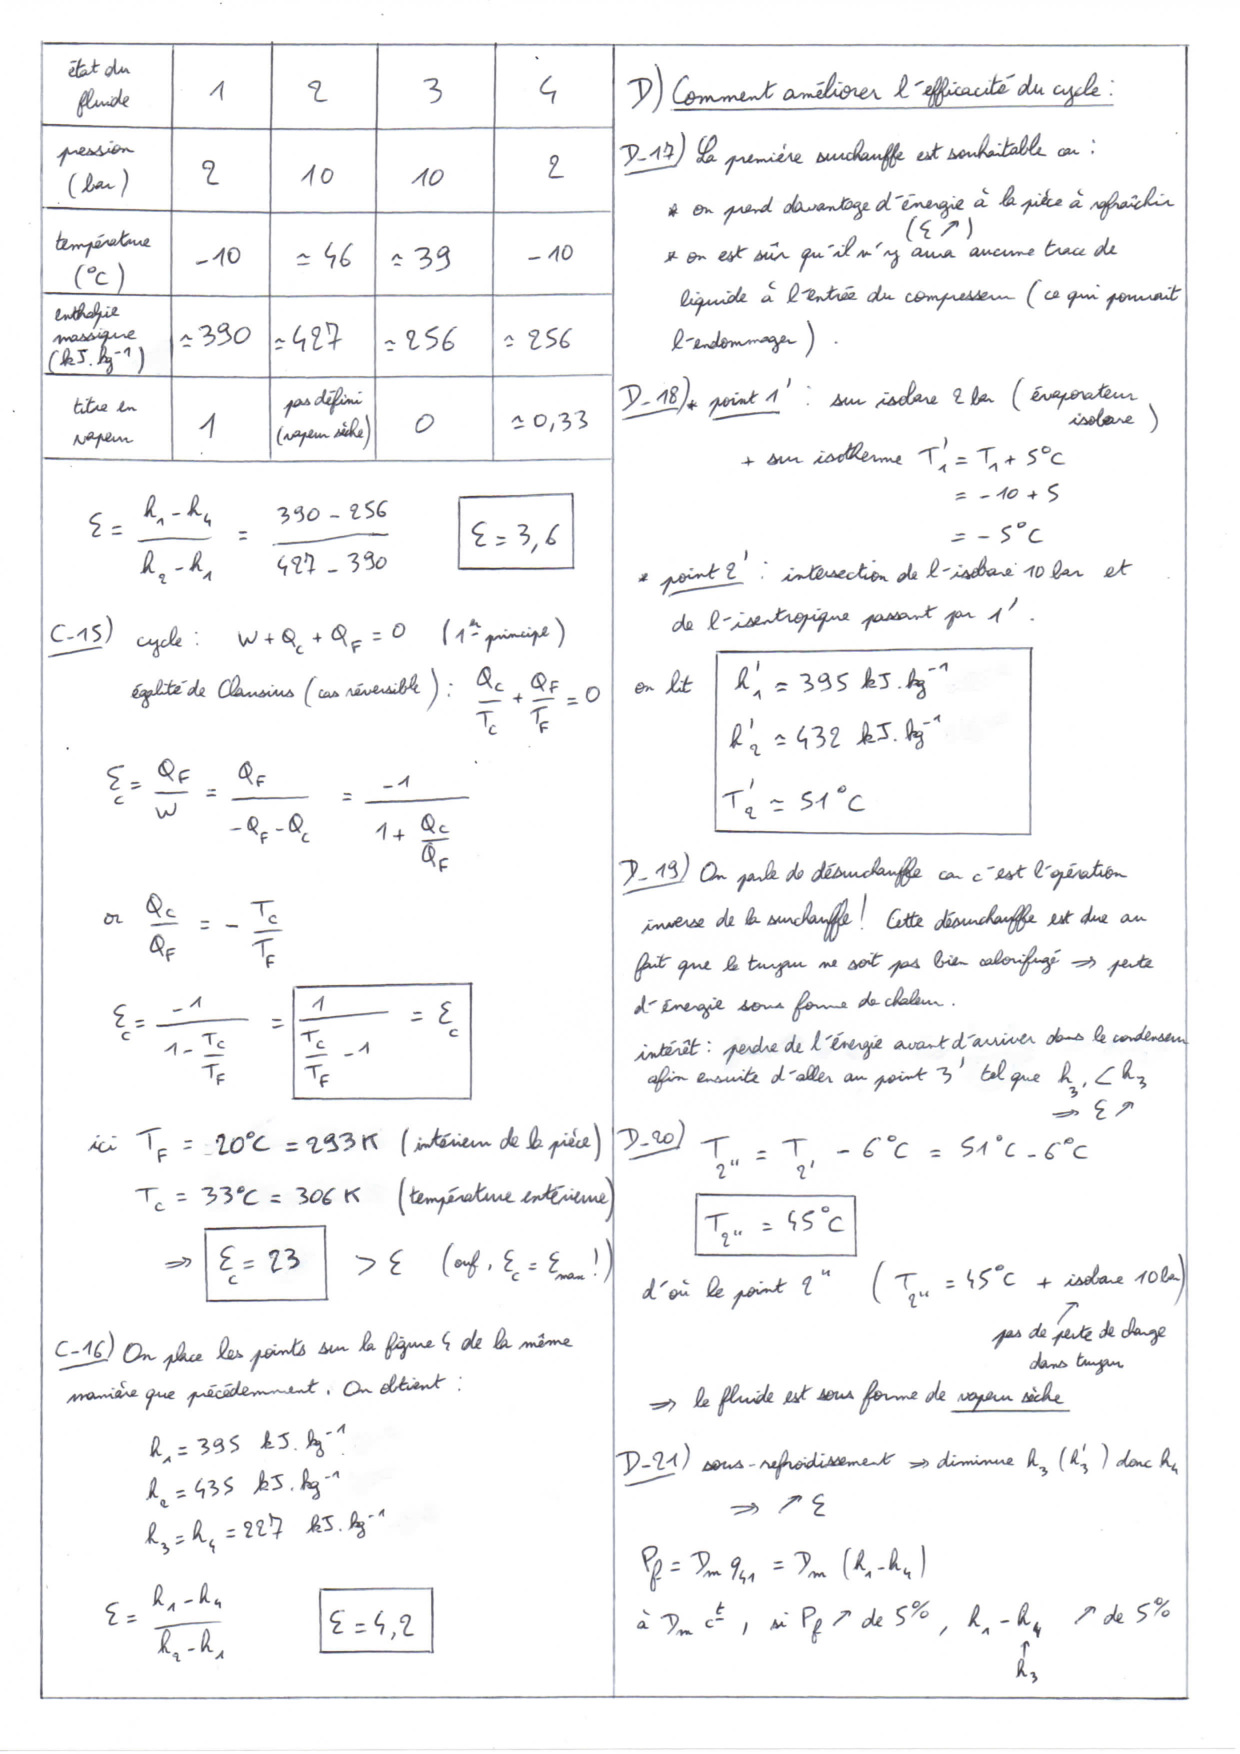 état du fluide 1 2 3 4
pression (bar) 2 10 10 2
température (°C) -10 ≃ 46 ≃ 39 -10
enthalpie massique (kJ.kg⁻¹) ≃ 390 ≃ 427 ≃ 256 ≃ 256
titre en vapeur 1 pas défini (vapeur sèche) 0 ≃ 0,33
ε = (h₁ - h₄)/(h₂ - h₁) = (390 - 256)/(427 - 390) ε = 3,6
C-15) cycle : W + Q_c + Q_F = 0 (1er principe)
égalité de Clausius (cas réversible) : Q_c/T_c + Q_F/T_F = 0
ε_c = Q_F/W = Q_F/(-Q_F - Q_c) = -1/(1 + Q_c/Q_F)
or Q_c/Q_F = - T_c/T_F
ε_c = -1/(1 - T_c/T_F) = 1/(T_c/T_F - 1) = ε_c
ici T_F = 20°C = 293 K (intérieur de la pièce)
T_c = 33°C = 306 K (température extérieure)
⇒ ε_c = 23 > ε (ouf, ε_c = ε_max !)
C-16) On place les points sur la figure 4 de la même
manière que précédemment. On obtient :
h₁ = 395 kJ.kg⁻¹
h₂ = 435 kJ.kg⁻¹
h₃ = h₄ = 227 kJ.kg⁻¹
ε = (h₁ - h₄)/(h₂ - h₁) ε = 4,2
D) Comment améliorer l'efficacité du cycle :
D-17) La première surchauffe est souhaitable car :
* on prend davantage d'énergie à la pièce à rafraîchir
(ε ↗)
* on est sûr qu'il n'y aura aucune trace de
liquide à l'entrée du compresseur (ce qui pourrait
l'endommager).
D-18) * point 1' : sur isobare 2 bar (évaporateur
isobare)
+ sur isotherme T₁' = T₁ + 5°C
= -10 + 5
= -5°C
* point 2' : intersection de l'isobare 10 bar et
de l'isentropique passant par 1'.
on lit h₁' ≃ 395 kJ.kg⁻¹
h₂' ≃ 432 kJ.kg⁻¹
T₂' ≃ 51°C
D-19) On parle de désurchauffe car c'est l'opération
inverse de la surchauffe ! Cette désurchauffe est due au
fait que le tuyau ne soit pas bien calorifugé ⇒ perte
d'énergie sous forme de chaleur.
intérêt : perdre de l'énergie avant d'arriver dans le condenseur
afin ensuite d'aller au point 3' tel que h₃' < h₃
⇒ ε ↗
D-20) T₂'' = T₂' - 6°C = 51°C - 6°C
T₂'' = 45°C
d'où le point 2'' (T₂'' = 45°C + isobare 10 bar)
pas de perte de charge
dans tuyau
⇒ le fluide est sous forme de vapeur sèche
D-21) sous-refroidissement ⇒ diminue h₃ (h₃') donc h₄
⇒ ↗ ε
P_f = D_m q₄₁ = D_m (h₁ - h₄)
à D_m cᵗᵉ, si P_f ↗ de 5%, h₁ - h₄ ↗ de 5%
↑
h₃